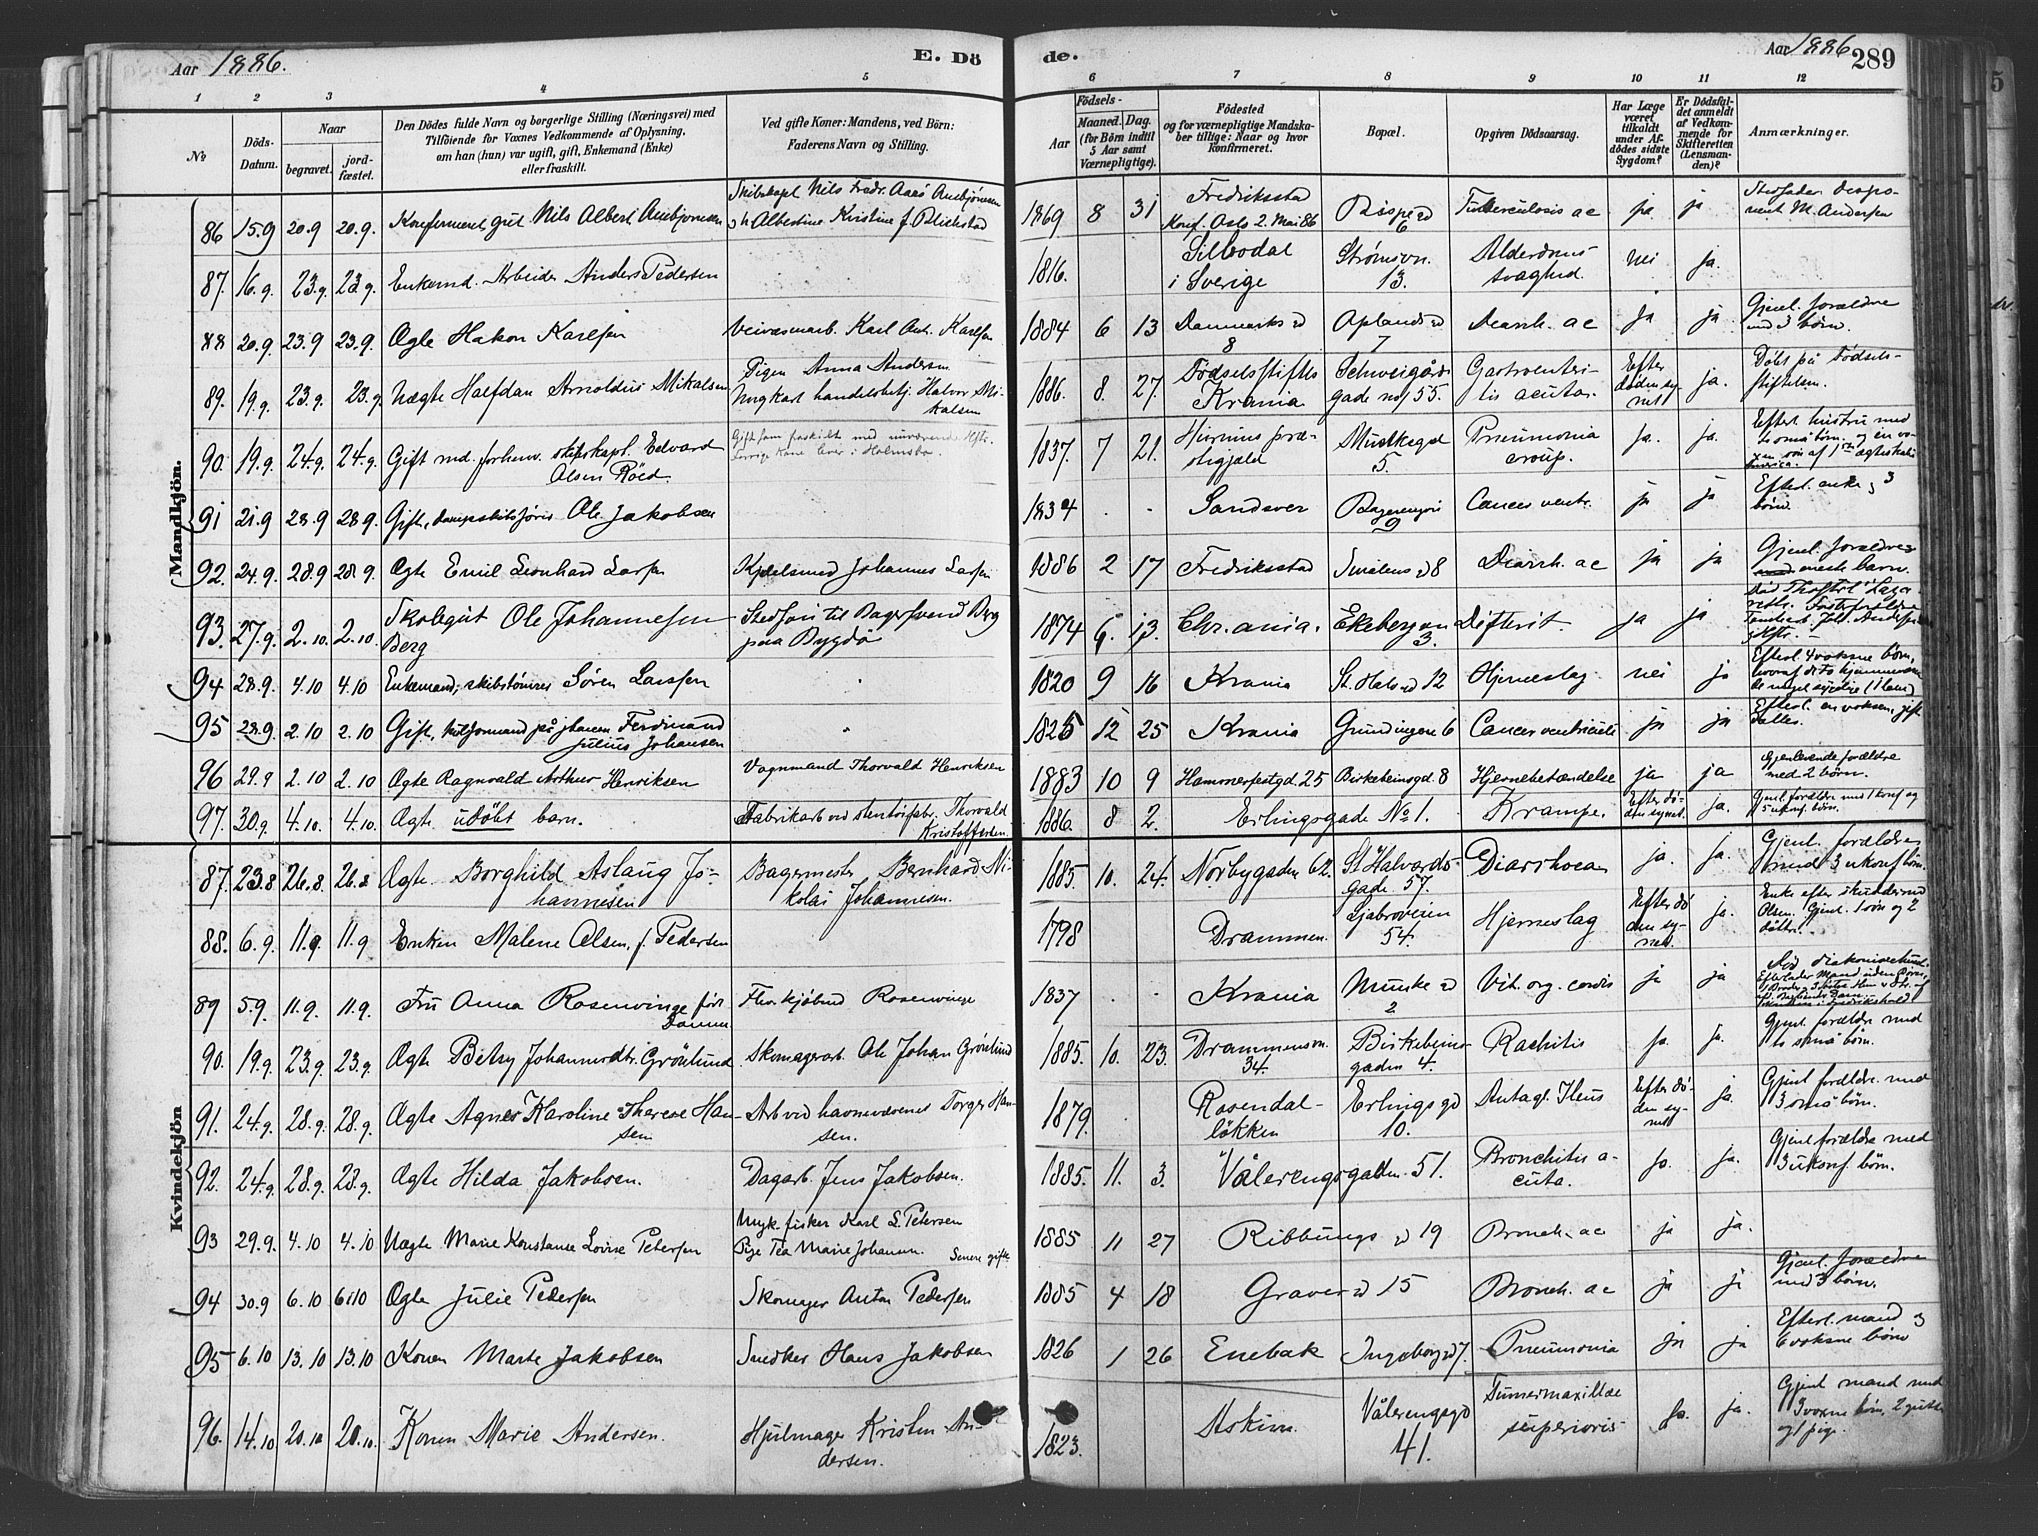 Aar 1886.
E. Dö
de.
Aar 1886
289
1 2 3 4 5 6 7 8 9 10 11 12
№
Döds-
Datum.
Naar
begravet.
jord-
fæstet.
Den Dödes fulde Navn og borgerlige Stilling (Næringsvei) med
Tilföiende for Voxnes Vedkommende af Oplysning,
om han (hun) var ugift, gift, Enkemand (Enke)
eller fraskilt.
Ved gifte Koner: Mandens, ved Börn:
Faderens Navn og Stilling.
Födsels-
Aar
Maaned.
Dag.
(for Börn indtil
5 Aar samt
Værnepligtige).
Födested
og for værnepligtige Mandska-
ber tillige: Naar og hvor
konfirmeret.
Bopæl.
Opgiven Dödsaarsag.
Har Læge
været
tilkaldt
under Af-
dödes sidste
Sygdom?
Er Dödsfal-
det anmeldt
af Vedkom-
mende for
Skifteretten
(Lensman-
den)?
Anmærkninger.
Mandkjön.
86 15.9 20.9 20.9. Konfirmeret gut Nils Albert Anebjörnsen
Skibskapt. Nils Fredr. Aars Anebjörnsen
Albertine Kristine f. Blichstad
1869 8 31 Fredriksstad
Konf. Oslo 2. Mai 86
6 Tuberculosis ac ja ja
M. Andersen
87. 16.9. 23.9. 23.9. Enkemd. Arbeider Anders Pedersen
1816. Silbodal
i Sverige
Strömsvn.
13.
Alderdoms
svaghed.
nei ja.
88 20.9. 23.9 23.9. Ægte Hakon Karlsen Veivæsenarb. Karl Ant. Karlsen
1884 6 13 Danmarks gd
8
Oplands gd
7
Diarrh. ac ja ja Gjenl. forældre
med 3 børn.
89. 19.9. 23.9. 23.9. Uægte Halfdan Arnoldus Mikalsen
Pigen Anna Andersen
Ungkarl handelsbetj. Halvor Mi-
kalsen
1886. 8. 27. Fødselsstiftels
Krania
Schweigårds
gade no 55.
Gastroenteri-
tis acuta.
Efter
døden sy-
net
ja. Døbt på Fødsels-
stiftelsen.
90. 19.9. 24.9. 24.9. Gift md. forhenv. skibskapt. Edvard
Olsen Röed
Gift som fraskilt med nuværende
forrige Kone lever i Holmsbo.
1837. 7 21. Hurums præ-
stegjæld
Munkegd
5.
Pneumonia
croup.
ja. ja. Efterl. hustru med
to små børn og en vo-
xen søn af 1ste ægteskab i
Amerika.
91 21.9 28.9 28.9. Gift, dampskibsförer Ole Jakobsen
1834 . . Sandsvær
9
Cancer ventr. ja ja Efterl. enke og 3
børn.
92. 24.9. 28.9 28.9. Ægte Emil Leonhard Larsen Kjedelsmed Johannes Larsen
1886 2 17 Fredriksstad Smålens gd 8 Diarrh. ac ja ja Gjenl. forældre
eneste barn.
93. 27.9. 2.10. 2.10. Skolegut Ole Johannesen
Berg
Stedsön til Bagersvend Berg
paa Bygdö
1874 6. 13. Chr.ania. Ekebergvn
3.
Difterit. ja ja
94 28.9. 4.10 4.10. Enkemand, skibstömrer Sören Larssen
1820 9 16 Krania St. Hals gd 12 Hjerneslag nei ja Efterl. 4 voksne børn,
95 28.9. 2.10 2.10 Gift, Ferdinand
Julius Johansen
1825 12 25 Krania Grundingen 6 Cancer ventriculi ja ja Efterl. en voksen, gift
datter.
96 29.9 2.10. 2.10. Ægte Ragnvald Arthur Henriksen Vognmand Thorvald Henriksen
1883 10 9 Hammerfestgd. 25 Birkebeinsgd. 8 Hjernebetændelse ja ja Gjenlevende forældre
med 2 børn.
97. 30.9. 4.10. 4.10. Ægte udöbt barn. Fabrikarb ved stentöifabr. Thorvald
Kristoffersen.
1886. 8 2. Erlingsgade No 1. Krampe. Efter dö-
den synet. ja. Gjenl. forældre med 1 konf og
5 ukonf. børn.
Kvindekjön
87. 23.8 26.8. 26.8 Ægte Borghild Aslaug Jo-
hannesen
Bagermester Bernhard Ni-
kolai Johannesen.
1885. 10. 24. Norbygaden 62. St Halvards-
gade 57.
Diarrhoea ja. ja. Gjenl. forældre
med 3 ukonf børn.
88. 6.9. 11.9. 11.9 Enken Malene Olsen, f. Pedersen
1798 Drammen. Ljabroveien
54.
Hjerneslag Efter dö
den sy-
net.
ja. Enke efter
Olsen. Gjenl. 1 søn og 2
døttre.
89 5.9. 11.9. 11.9. Fru Anna Rosenvinge født
Rosenvinge
1837 . . Krania Munke gd
2
Vit. org. cordis ja ja
90. 19.9. 23.9. 23.9. Ægte Betsy Johannesdtr. Grönlund Skomagerarb. Ole Johan Grönlund
1885. 10. 23. Drammensvn.
34.
Birkebeins-
gaden 4.
Rachitis ja. ja. Gjenl. forældre med
to små børn.
91. 24.9. 28.9. 28.9. Ægte Agnes Karoline Therese Han-
sen
Arb ved havnevæsenet Torger Han-
sen.
1879. . . Rosendal-
løkken
Erlings gd
10.
Ileus Efter dö-
den sy-
net
ja. Gjenl forældre. med
3 små børn.
92. 24.9. 28.9. 28.9. Ægte Hilda Jakobsen. Dagarb. Jens Jakobsen.
1885. 11. 3. Vålerengsgaden. 51. Bronchitis a-
cuta.
ja. ja. Gjenl forældre med
3 ukonf. børn.
93 29.9. 4.10 4.10 Uægte Marie Konstanse Lovise Petersen
Ungk. fisker Karl L. Petersen
Pige Tea Marie Johansen. Senere gift.
1885 11 27 Ribbungs gd 19 Bronch. ac ja ja.
94 30.9 6.10 6.10 Ægte Julie Pedersen Skomager Anton Pedersen
1885 4 18 Graver gd 15 Bronch. ac ja ja Gjenl. forældre
med 3 børn.
95 6.10 13.10 13.10 Konen Marte Jakobsen Snedker Hans Jakobsen
1826 1 26 Enebak Ingeborg gd 7. Pneumonia ja ja Efterl. mand og
6 voksne børn
96. 14.10 20.10 20.10. Konen Marie Andersen. Hjulmager Kristen An-
dersen.
1823. Askim. Vålerengsgd
41.
Tumor maxillae
superioris
ja. ja. Gjenl mand med
3 voxne børn, 2 gutter
og 1 pige.